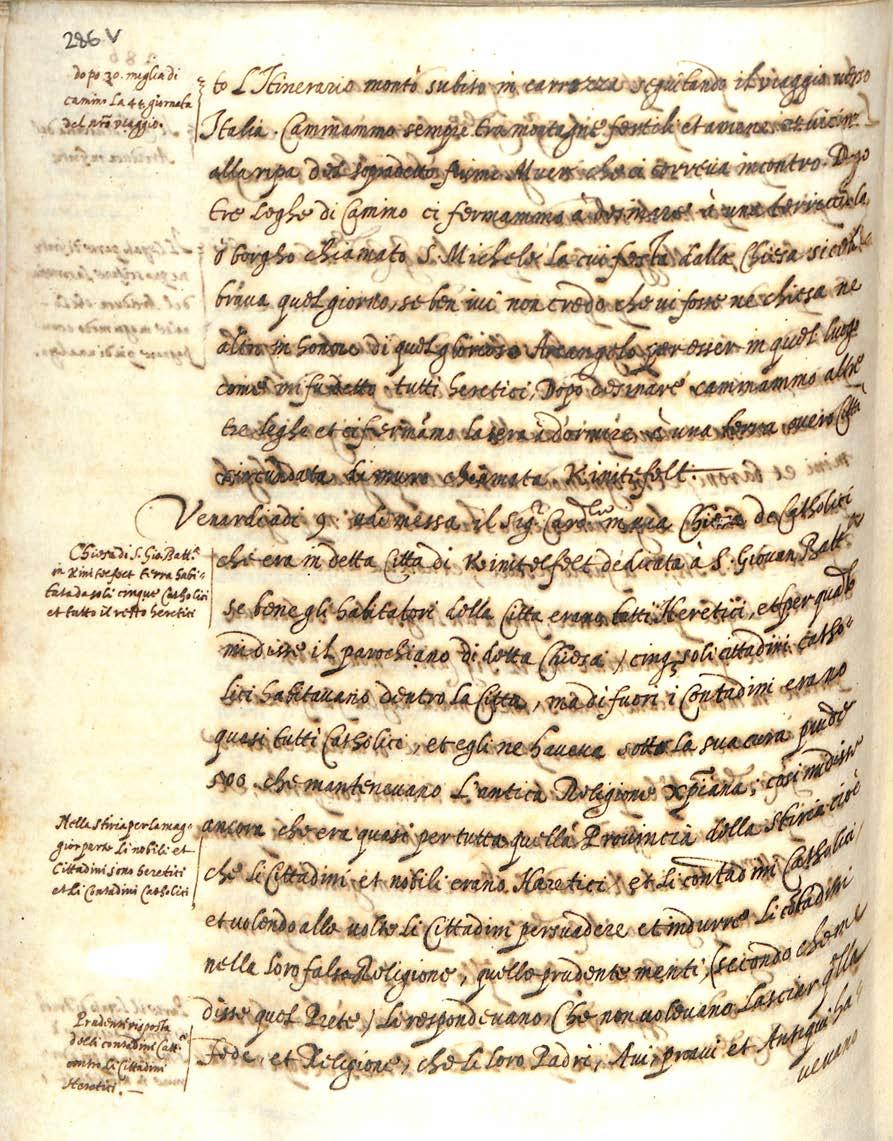 286 V
dopo 30. miglia di
camino La 44. giornata
del nro viaggio.
to L'Itinerario montò subito in carrozza seguitando il viaggio verso
Italia. Cammammo sempre tra montagne fertili et amene, et vicin
alla ripa del sopradetto fiume Muer che ci correva incontro. Dopo
tre leghe di Camino ci fermammo à desinare à una terricciola
ò borgho chiamato S. Michele la cui festa dalla Chiesa si cele
brava quel giorno, se ben ivi non credo che vi fosse ne chiesa ne
altro in honore di quel glorioso Arcangelo per esser in quel luogo
come mi fu detto tutti heretici, Dopo desinare cammammo altre
tre leghe et ci fermamo la sera à dormire à una terra overo Città
circundata di muro chiamata Kinitelfelt.
Venardi adi 9. udì messa il Sigr. Cardle in una Chiesa de Catholici
Chiesa di S. Gio. Battᵃ
in Kinitelfelt terra habi-
tata da soli cinque Catholici
et tutto il resto heretici
che era in detta Città di Kinitelfelt dedicata à S. Giovan Battᵃ
se bene gli habitatori della Citta erano tutti Heretici, et per quanto
mi disse il parochiano di detta Chiesa / cinq; soli cittadini catho-
lici habitavano dentro la Citta, ma di fuori i Contadini erano
quasi tutti Catholici, et egli ne haveva sotto la sua cura più di
500. che mantenevano L'antica Religione Xpiana; così mi disse
Nella Stiria per la mag-
gior parte li nobili et
Cittadini sono heretici
et li Contadini Catholici
ancora che era quasi per tutta quella Provincia della Stiria cioè
che li Cittadini et nobili erano Haretici, et li contadini Catholici,
et volendo alle volte li Cittadini persuadere et indurre li cotadini
nella loro falsa Religione, quelle prudente menti, (secondo che me
disse quel Prete) li respondevano, Che non volevano lasciar qlla
Prudente risposta
delli contadini Catt.ci
contro li Cittadini
Heretici.
Fede, et Religione, che li loro Padri, Avi, proavi et Antiqui ha-
vevano